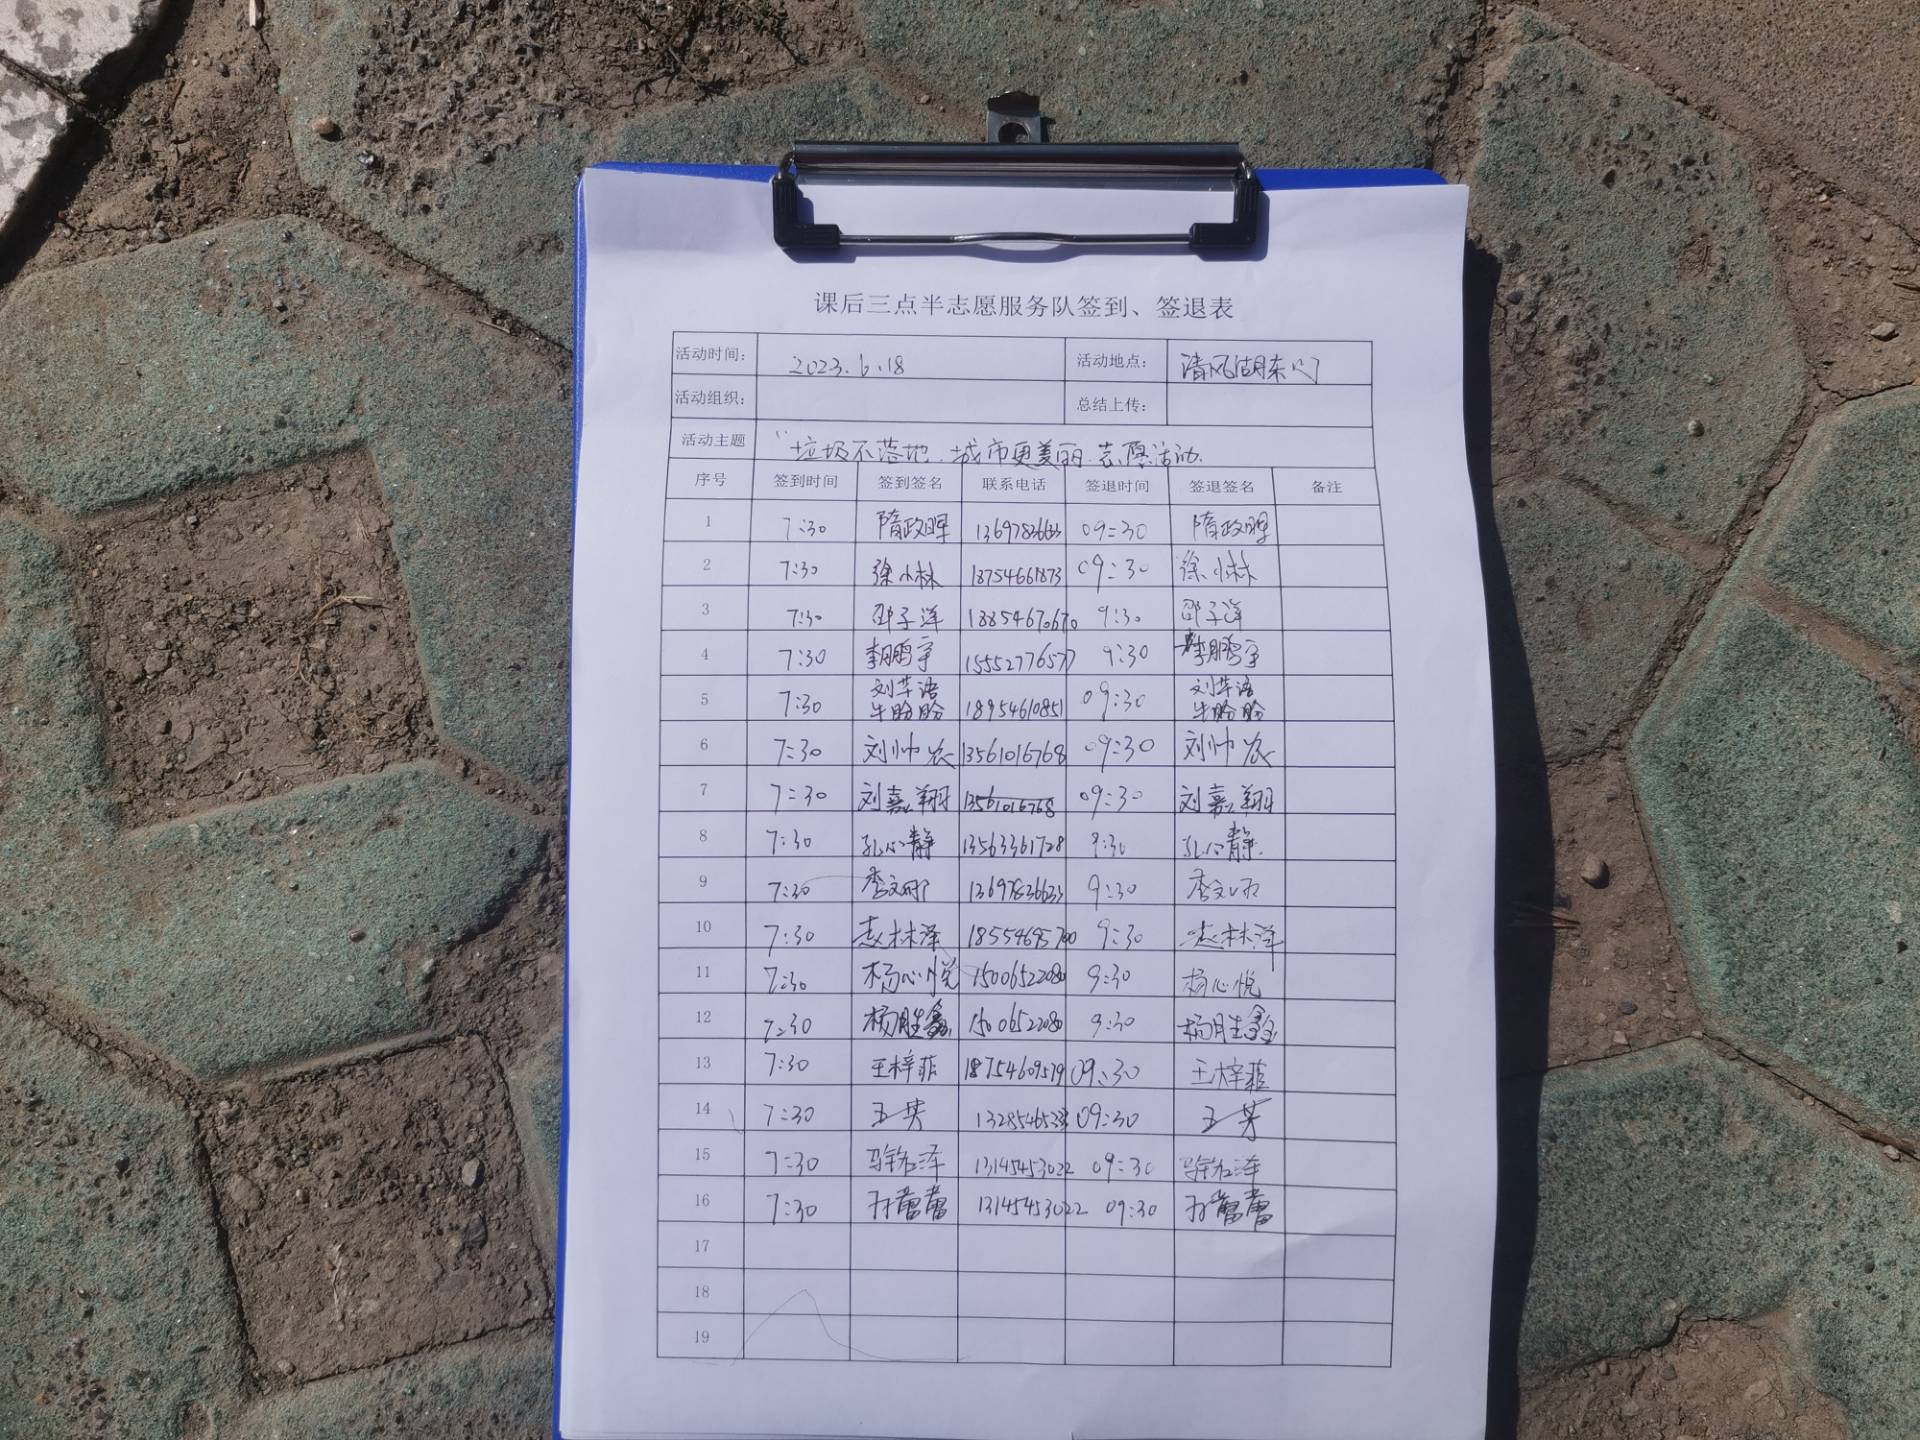 课后三点半志愿服务队签到、签退表
活动时间： 2023.6.18 活动地点： 清风湖东门
活动组织： 总结上传：
活动主题 “垃圾不落地.城市更美丽.志愿活动.
序号 签到时间 签到签名 联系电话 签退时间 签退签名 备注
1 7:30 隋政晖 13697836633 09:30 隋政晖
2 7:30 徐小林 18754661873 09:30 徐小林
3 7:30 邵子洋 18854670670 9:30 邵子洋
4 7:30 李鹏宇 15552776577 9:30 李鹏宇
5 7:30 刘芊语 刘芊语
牛盼盼 18954610851 09:30 牛盼盼
6 7:30 刘帅农 13561016768 09:30 刘帅农
7 7:30 刘嘉翔 13561016768 09:30 刘嘉翔
8 7:30 孔心静 13563361728 9:30 孔心静.
9 7:30 李文娜 13697836633 9:30 李文娜
10 7:30 赵林泽 18554695700 9:30 赵林泽
11 7:30 杨心悦 15006522080 9:30 杨心悦
12 7:30 杨胜鑫 15006522080 9:30 杨胜鑫
13 7:30 王梓菲 18754609579 09:30 王梓菲
14 7:30 王芳 09:30 王芳
15 7:30 13145453022 09:30
16 7:30 孙蕾蕾 13145453022 09:30 孙蕾蕾
17
18
19